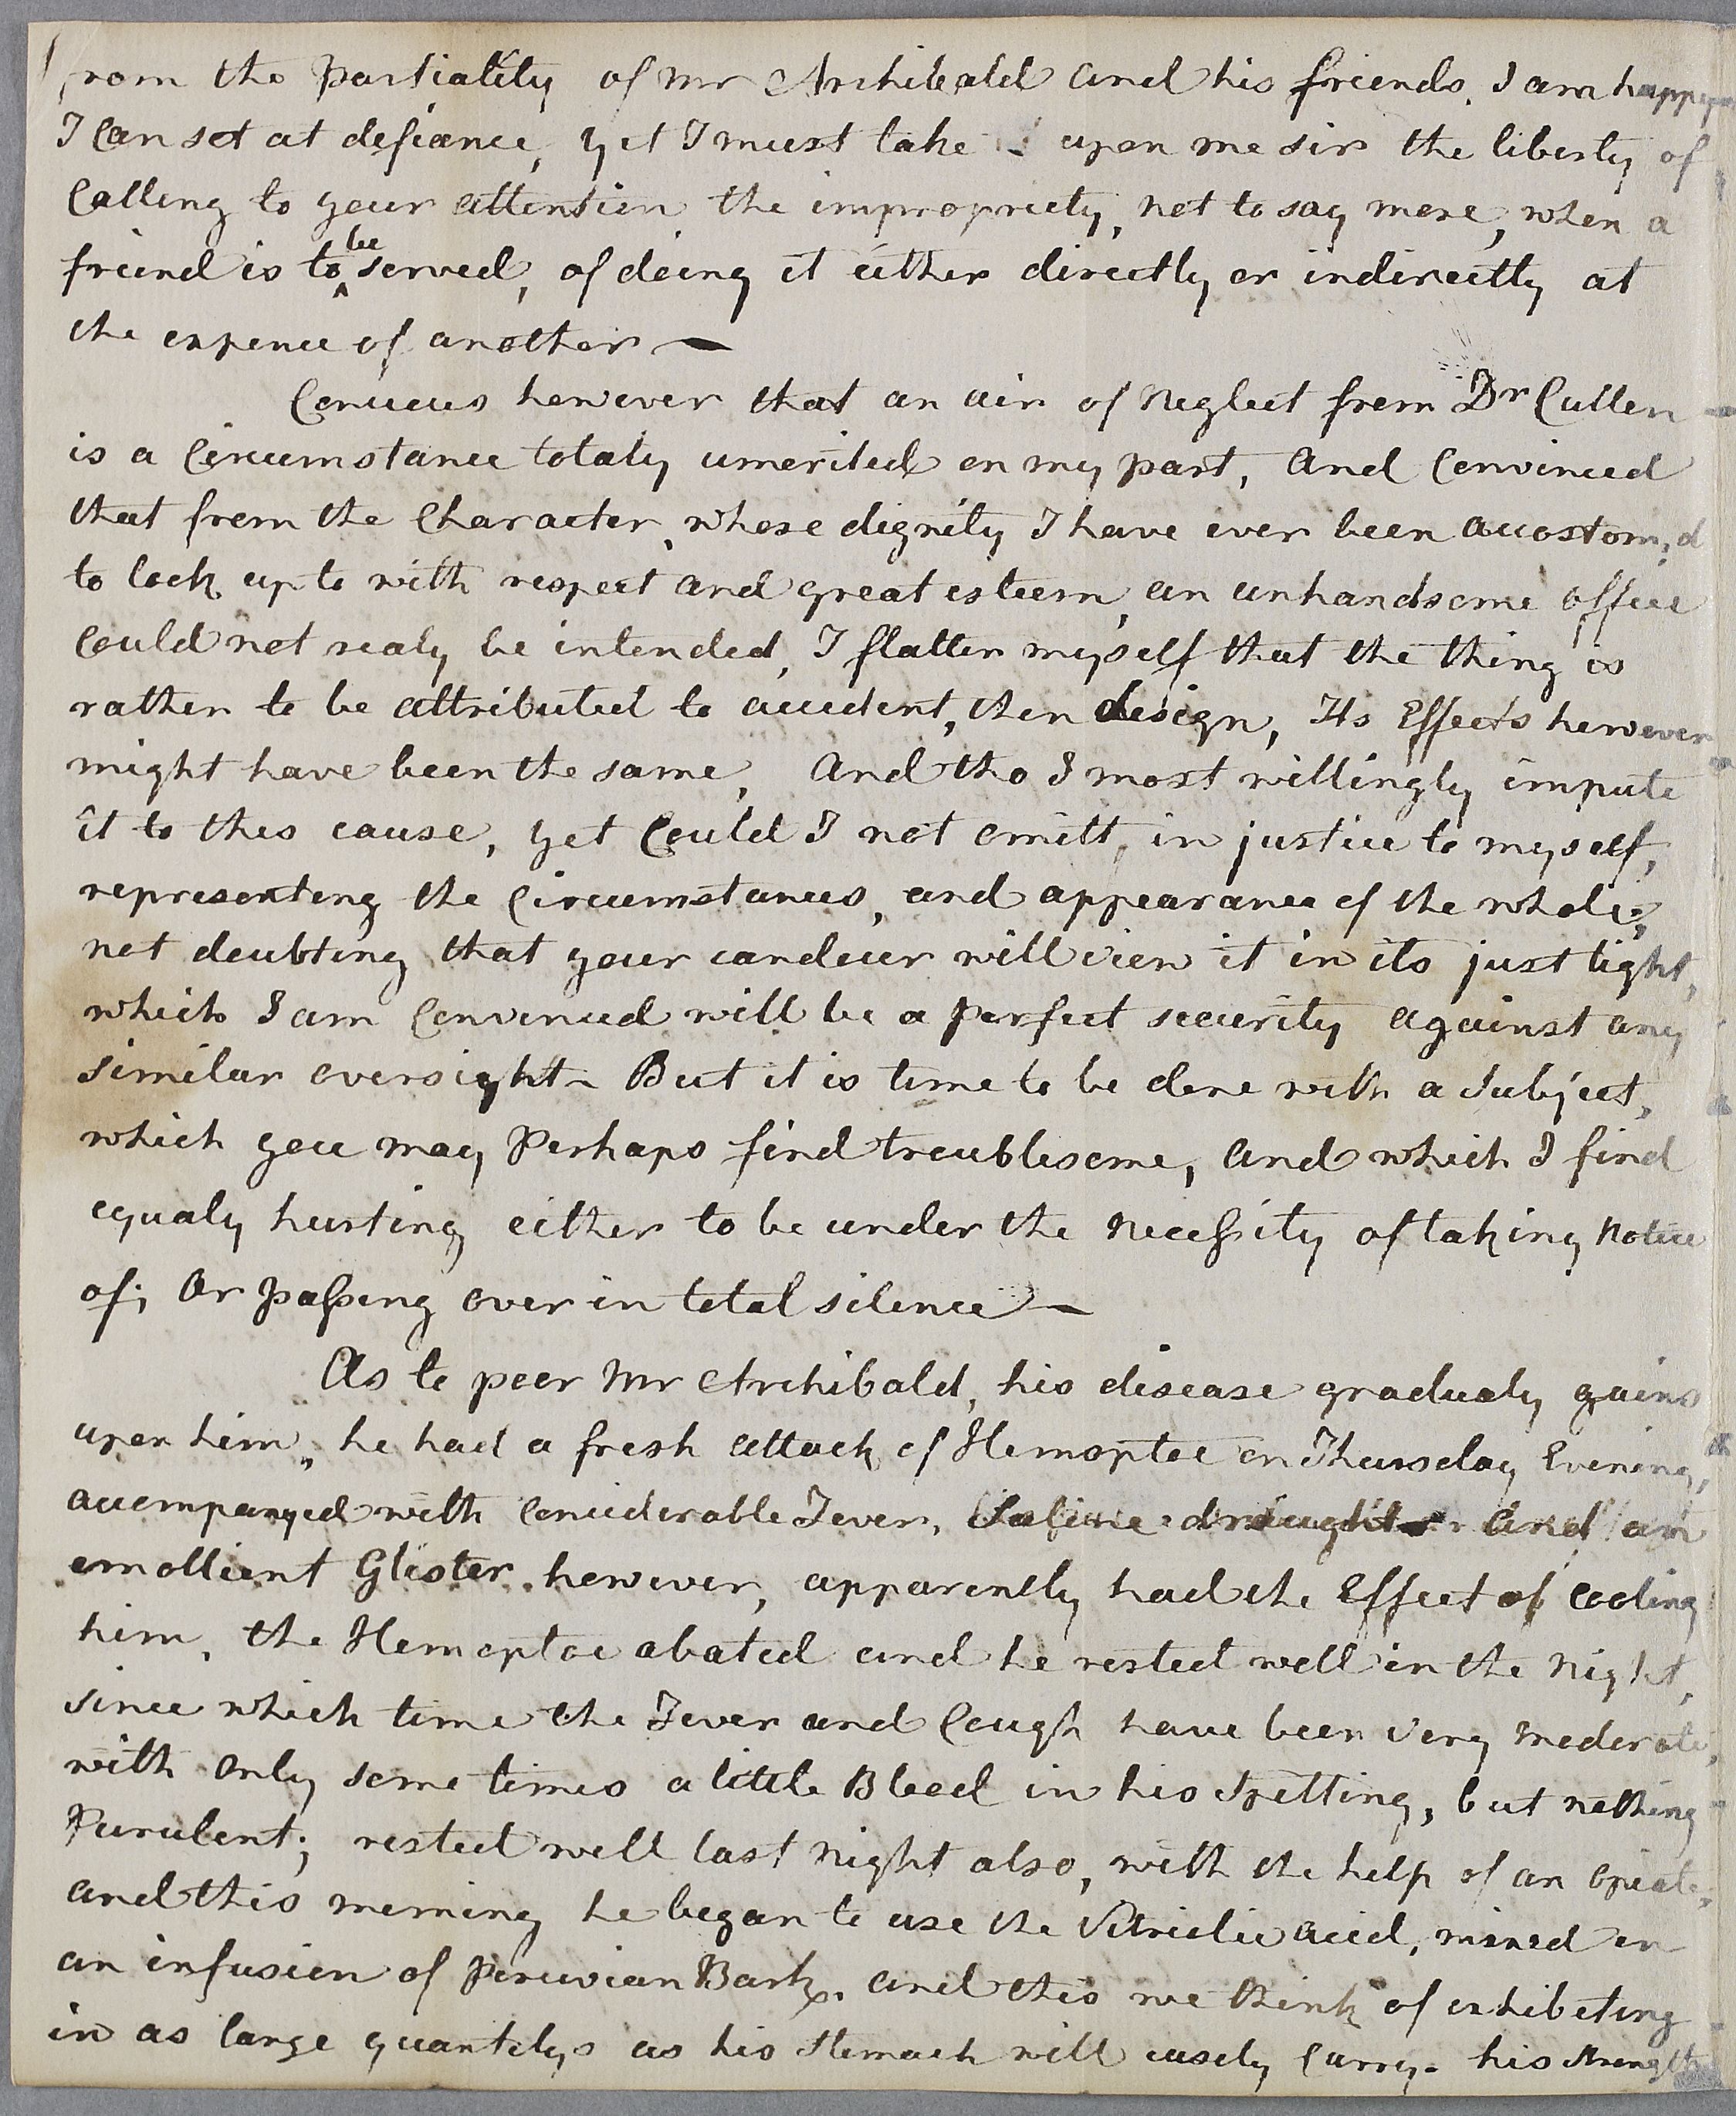 from the Partiality of Mr Archibald and his friends, I am happy
I Can set at defiance, yet I must take upon me sir the liberty of
Calling to your attention the impropriety, not to say more, when a
friend is to be served, of doing it either directly or indirectly at
the expence of another —
Concious however that an air of Neglect from Dr Cullen
is a Circumstance totaly umerited on my part, And Convinced
that from the Character, whose dignity I have ever been accostom,d
to look up to with respect and great esteem, an unhandsome office
Could not realy be intended, I flatter myself that the thing is
rather to be attributed to accident, then design, Its Effects however
might have been the same, And tho I most willingly impute
it to this cause, yet Could I not omitt, in justice to myself,
representing the Circumstances, and appearance of the whole;
not doubting that your candour will view it in its just light,
which I am Convinced will be a perfect security against any
similar oversight – But it is time to be done with a Subject,
which you may Perhaps find troublesome, and which I find
equaly hurting either to be under the necessity of taking Notice
of; Or passing over in total silence —
As to poor Mr Archibald, his disease gradualy gains
upon him, he had a fresh attack of Hemoptoe on Thursday Evening,
accompanyed with Considerable Fever, Saline draughts and an
emollient Glister, however, apparently had the Effect of Cooling
him, the Hemoptoe abated and he rested well in the night,
since which time the Fever and Cough have been very moderate,
with only some times a little Blood in his Spitting, but nothing
Purulent; rested well last night also, with the help of an opiate;
and this morning he began to use the Vitriolic acid, mixed in
an infusion of Peruvian Bark, and this we think of exhibeting
in as large quantitys as his Stomach will easely Carry. his strength